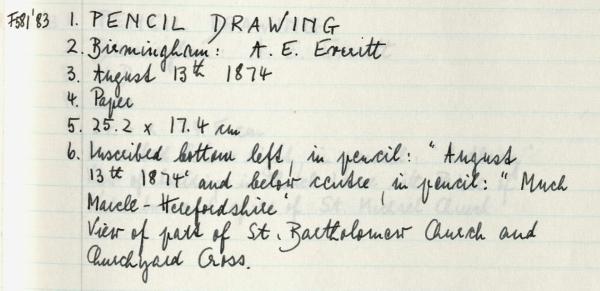 F581'83 1. PENCIL DRAWING
2. Birmingham: A. E. Everitt
3. August 13th 1874
4. Paper
5. 25.2 x 17.4 cm
6. Inscribed bottom left, in pencil: "August
13th 1874" and below centre, in pencil: "Much
Marcle - Herefordshire"
View of part of St. Bartholomew Church and
Churchyard Cross.